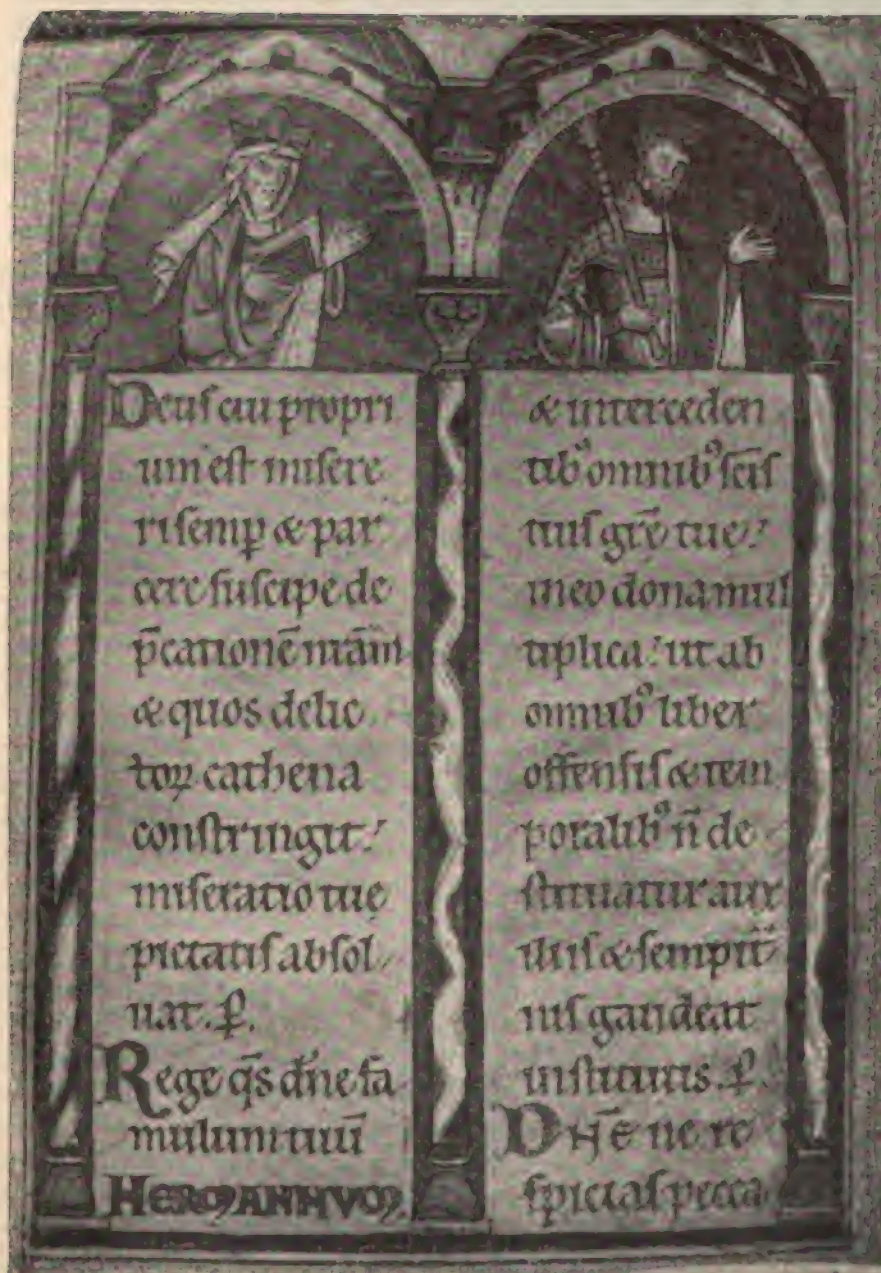 Deus cui propri
um est misere
ri semꝑ & par
cere suscipe de
p̄cationē n̄am
& quos delic
toꝝ cathena
constringit:
miseratio tuę
pietatis absol
uat. ꝑ.
Rege q̄s dn̄e fa
mulum tuū
HERMANNVM
& interceden
tibꝰ omnibꝰ sc̄is
tuis grē tuę:
in eo dona mul
tiplica: ut ab
omnibꝰ liber
offensis & tem
poralibꝰ n̄ de
stituatur aux
iliis & sempit̄
nis gaudeat
institutis. ꝑ.
DN̄E ne re
spicias pecca